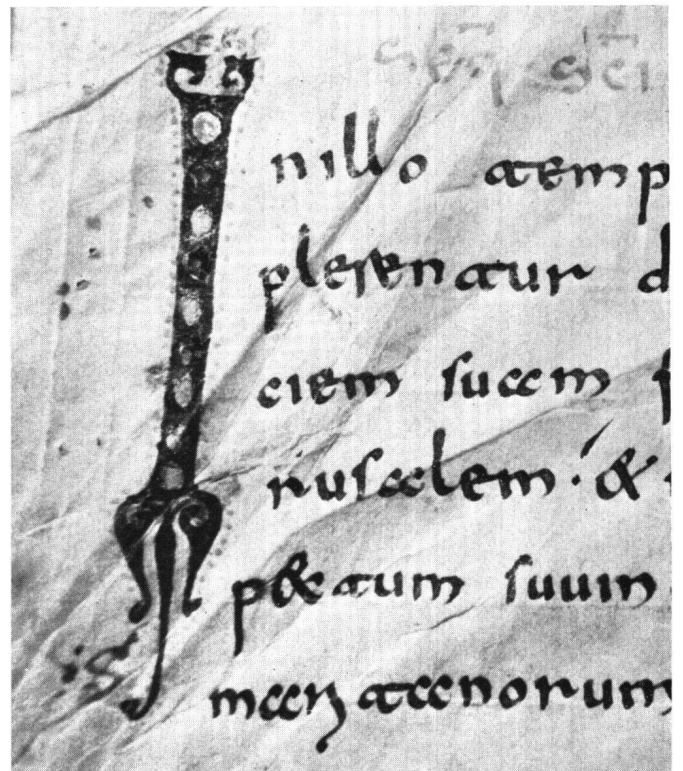 Seq sci
Inillo temp
plerentur d
ciem suam f
rusalem. &
pectum suum
maritanorum